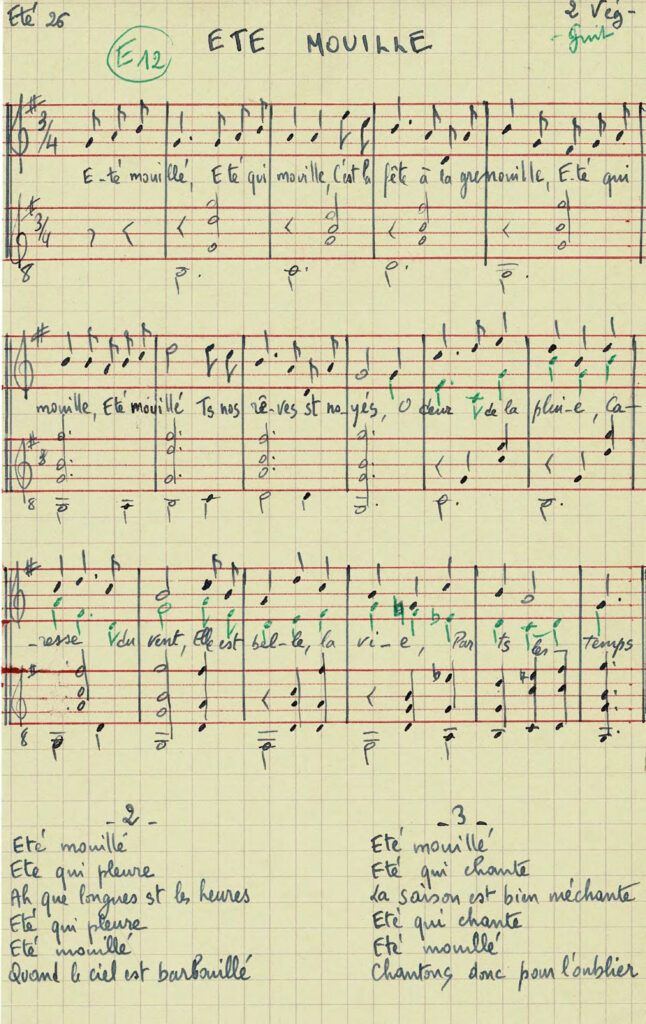 Eté 26
2 Vég-
- Guit
E12
ETE MOUILLE
E-té mouillé, E té qui mouille, C'est la fête à la grenouille, E.té qui
mouille, Eté mouillé Ts nos rê-ves st no-yés, O deur de la plui-e, Ca-
-resse du vent, Elle est bel-le, la vi-e, Par ts les Temps
- 2 -
Eté mouillé
Ete qui pleure
Ah que longues st les heures
Eté qui pleure
Eté mouillé
Quand le ciel est barbouillé
- 3 -
Eté mouillé
Eté qui chante
La saison est bien méchante
Eté qui chante
Eté mouillé
Chantons donc pour l'oublier